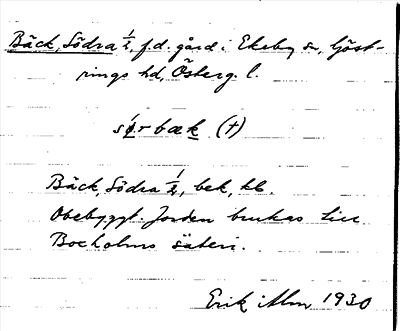 Bäck, Södra 1/2, f.d. gård i Ekeby sn, Göst-
rings hd, Österg. l.
sørbæk (+)
Bäck, Södra 1/2, bek, hb.
Obebyggt. Jorden brukas till
Boxholms säteri.
Erik Alm 1930